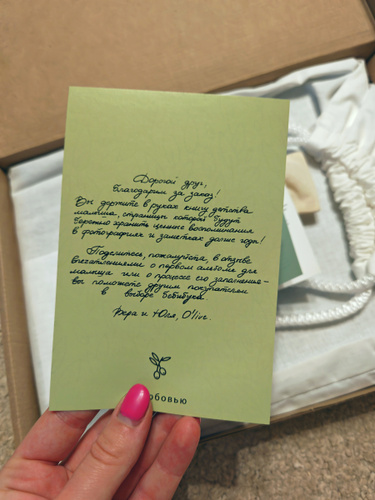 Дорогой друг,
благодарим за заказ!
Вы держите в руках книгу детства
малыша, страницы которой будут
бережно хранить ценные воспоминания
в фотографиях и заметках долгие годы!
Поделитесь, пожалуйста, в отзыве
впечатлениями о первом альбоме для
малыша или о процессе его заполнения -
вы поможете другим покупателям
в выборе бебибука.
Вера и Юля, O'live.
юбовью